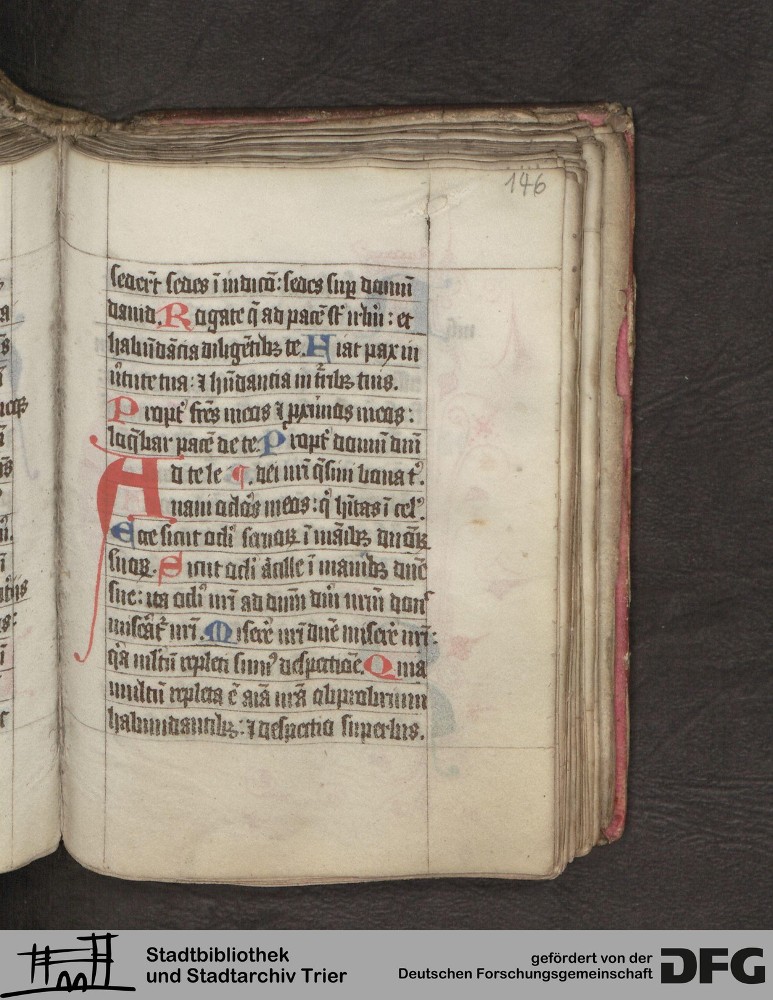 146
sederūt sedes ī iudicō: sedes sup domū
dauid. Rogate q̄ ad pacē st̄ irl̄m: et
habūdācia diligētibꝫ te. Fiat pax in
v̓tute tua: ⁊ hūdantia in t̓ribꝫ tuis.
Propt̓ frēs meos ⁊ pximos meos:
loq̄bar pacē de te. Propt̓ domū dn̄i
dei nr̄i q̄siui bona t̓.
Ad te le
uaui oclōs meos: q̓ hītas ī cel̓.
Ecce sicut ocli̓ seruoꝝ ī māibꝫ dn̄oꝝ
suoꝝ. Sicut ocli̓ ācille ī manibꝫ dn̄e
sue: ita ocli̓ nr̄i ad dn̄m dm̄ nrm̄ don̓
miseāt̓ nr̄i. Miserē nr̄i dn̄e miserē nr̄i:
q̄a mltū repleti sum̓ despectiōe. Quia
multū repleta ē aīa nr̄a obprobrium
habundantibꝫ: ⁊ despectio superbis.
Stadtbibliothek
und Stadtarchiv Trier
gefördert von der
Deutschen Forschungsgemeinschaft
DFG